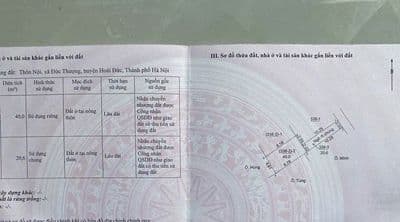 ở và tài sản khác gắn liền với đất
ng đất: Thôn Nội, xã Đức Thượng, huyện Hoài Đức, Thành phố Hà Nội
Diện tích (m²)
Hình thức sử dụng
Mục đích sử dụng
Thời hạn sử dụng
Nguồn gốc sử dụng
40,0
Sử dụng riêng
Đất ở tại nông thôn
Lâu dài
Nhận chuyển
nhượng đất được
Công nhận
QSDĐ như giao
đất có thu tiền sử
dụng đất
20,6
Sử dụng chung
Đất ở tại nông thôn
Lâu dài
Nhận chuyển
nhượng đất được
Công nhận
QSDĐ như giao
đất có thu tiền sử
dụng đất
xây dựng khác: -/-
ất là rừng trồng: -/-
m: -/-
III. Sơ đồ thửa đất, nhà ở và tài sản khác gắn liền với đất
Ô. Hùng
Ô. Tùng
40,0
20,6